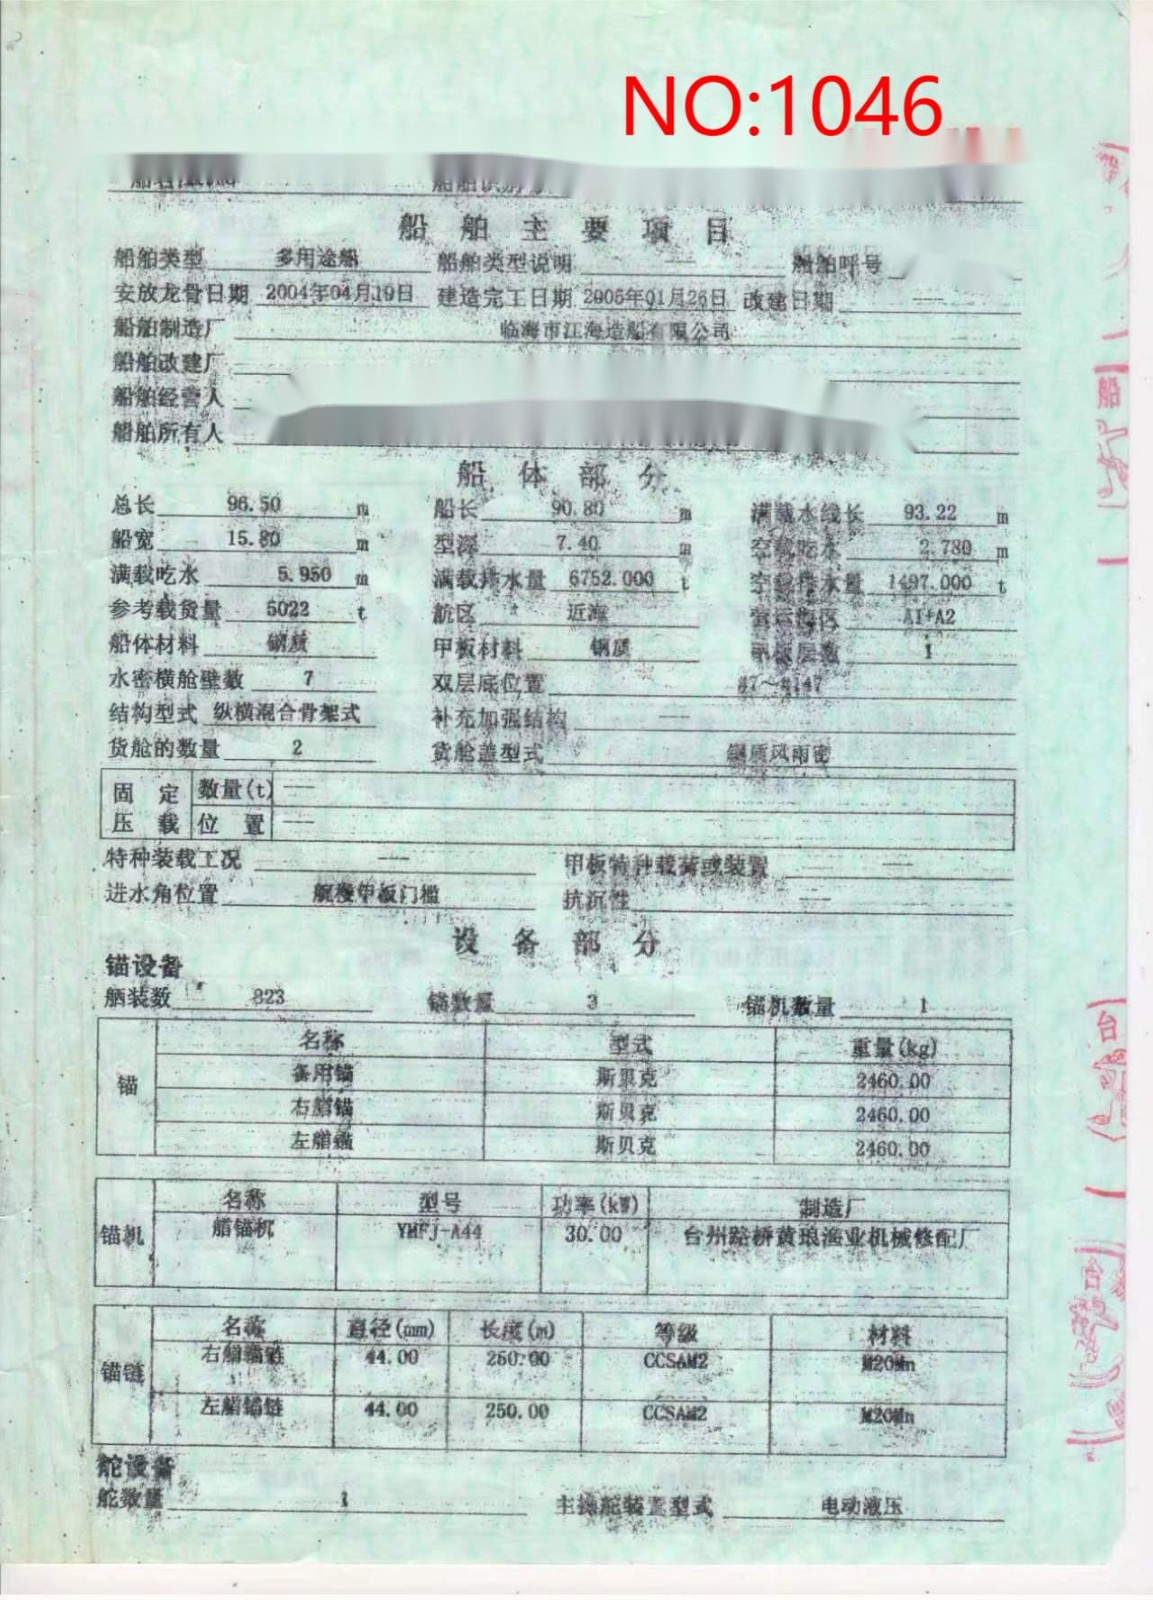 NO:1046
船舶主要项目
船舶类型 多用途船 船舶类型说明 —— 船舶呼号
安放龙骨日期 2004年04月19日 建造完工日期 2005年01月26日 改建日期 ——
船舶制造厂 临海市江海造船有限公司
船舶改建厂
船舶经营人
船舶所有人
船体部分
总长 96.50 m 船长 90.80 m 满载水线长 93.22 m
船宽 15.80 m 型深 7.40 m 空载吃水 2.780 m
满载吃水 5.950 m 满载排水量 6752.000 t 空载排水量 1497.000 t
参考载货量 5022 t 航区 近海 营运海区 A1+A2
船体材料 钢质 甲板材料 钢质 甲板层数 1
水密横舱壁数 7 双层底位置 #7～#147
结构型式 纵横混合骨架式 补充加强结构 ——
货舱的数量 2 货舱盖型式 钢质风雨密
固定压载 数量(t) ——
位置 ——
特种装载工况 —— 甲板特种载荷或装置 ——
进水角位置 艉楼甲板门槛 抗沉性 ——
设备部分
锚设备
舾装数 823 锚数量 3 锚机数量 1
名称 型式 重量(kg)
锚
备用锚 斯贝克 2460.00
右艏锚 斯贝克 2460.00
左艏锚 斯贝克 2460.00
名称 型号 功率(kW) 制造厂
锚机 艏锚机 YMFJ-A44 30.00 台州路桥黄琅渔业机械修配厂
名称 直径(mm) 长度(m) 等级 材料
锚链
右艏锚链 44.00 250.00 CCSAM2 M20Mn
左艏锚链 44.00 250.00 CCSAM2 M20Mn
舵设备
舵数量 1 主操舵装置型式 电动液压